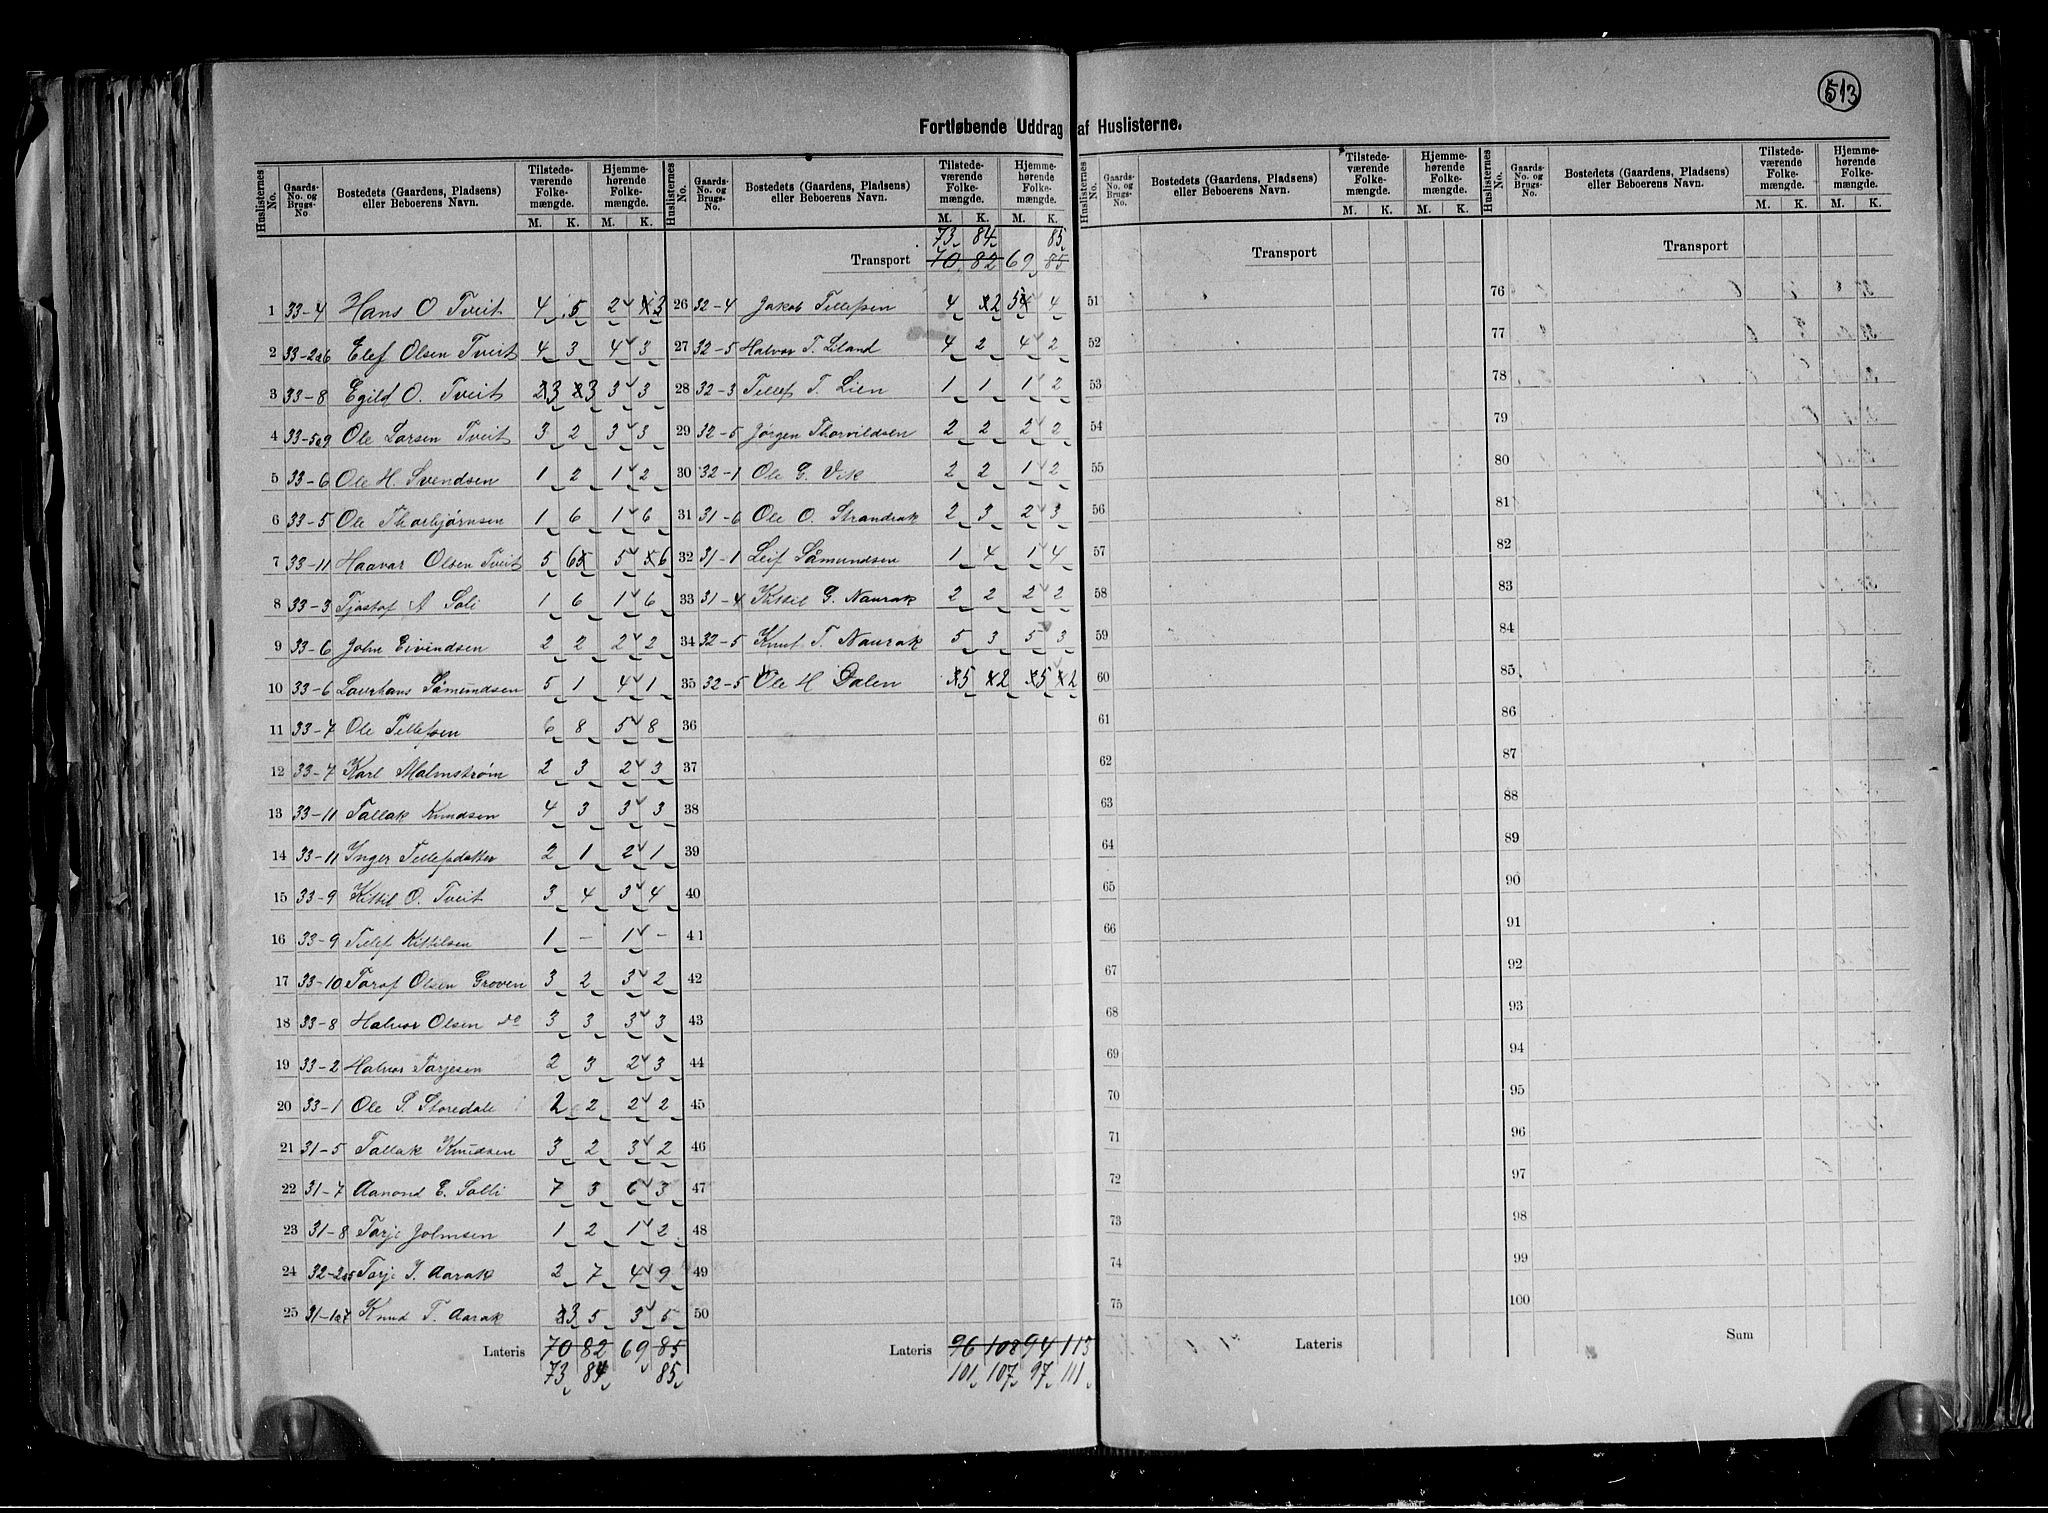 513
Fortløbende Uddrag af Huslisterne.
Huslisternes No. Gaards- No. og Brugs- No Bostedets (Gaardens, Pladsens) eller Beboerens Navn. Tilstede- værende Folke- mængde. Hjemme- hørende Folke- mængde. M. K. M. K.
1 33-4 Hans O Tveit 4 5 2 3
2 33-2a6 Elef Olsen Tveit 4 3 4 3
3 33-8 Egild O. Tveit 3 3 3 3
4 33-5a9 Ole Larsen Tveit 3 2 3 3
5 33-6 Ole H. Svendsen 1 2 1 2
6 33-5 Ole Thorbjørnsen 1 6 1 6
7 33-11 Haavar Olsen Tveit 5 6 5 6
8 33-3 Tjøstof A Soli 1 6 1 6
9 33-6 John Eivindsen 2 2 2 2
10 33-6 Laurhans Såmundsen 5 1 4 1
11 33-7 Ole Tellefsen 6 8 5 8
12 33-7 Karl Malmstrøm 2 3 2 3
13 33-11 Tallak Knudsen 4 3 3 3
14 33-11 Inger Tellefsdatter 2 1 2 1
15 33-9 Kittil O. Tveit 3 4 3 4
16 33-9 Tellef Kittilsen 1 - 1 -
17 33-10 Taraf Olsen Groven 3 2 3 2
18 33-8 Halvor Olsen do 3 3 3 3
19 33-2 Halvor Tarjesen 2 3 2 3
20 33-1 Ole S. Storedale 2 2 2 2
21 31-5 Tallak Knudsen 3 2 3 2
22 31-7 Aanond E. Solli 7 3 6 3
23 31-8 Tarje Johnsen 1 2 1 2
24 32-2a5 Tarje J. Aarak 2 7 4 9
25 31-1a7 Knud T. Aarak 3 5 3 5
Lateris 70 82 69 85
73 84 85
Huslisternes No. Gaards- No. og Brugs- No. Bostedets (Gaardens, Pladsens) eller Beboerens Navn. Tilstede- værende Folke- mængde. Hjemme- hørende Folke- mængde. M. K. M. K.
73 84 85
Transport 70 82 69 85
26 32-4 Jakob Tellefsen 4 2 5 4
27 32-5 Halvor T. Liland 4 2 4 2
28 32-3 Tellef T. Lien 1 1 1 2
29 32-5 Jørgen Thorvildsen 2 2 2 2
30 32-1 Ole G. Vik 2 2 1 2
31 31-6 Ole O. Strandrak 2 3 2 3
32 31-1 Leif Såmundsen 1 4 1 4
33 31-4 Kittil G. Naurak 2 2 2 2
34 32-5 Knut T. Naurak 5 3 5 3
35 32-5 Ole H Dalen 5 2 5 2
36
37
38
39
40
41
42
43
44
45
46
47
48
49
50
Lateris 96 108 94 113
101 107 97 111
Huslisternes No. Gaards- No. og Brugs- No. Bostedets (Gaardens, Pladsens) eller Beboerens Navn. Tilstede- værende Folke- mængde. Hjemme- hørende Folke- mængde. M. K. M. K.
Transport
51
52
53
54
55
56
57
58
59
60
61
62
63
64
65
66
67
68
69
70
71
72
73
74
75
Lateris
Huslisternes No. Gaards- No. og Brugs- No. Bostedets (Gaardens, Pladsens) eller Beboerens Navn. Tilstede- værende Folke- mængde. Hjemme- hørende Folke- mængde. M. K. M. K.
Transport
76
77
78
79
80
81
82
83
84
85
86
87
88
89
90
91
92
93
94
95
96
97
98
99
100
Sum